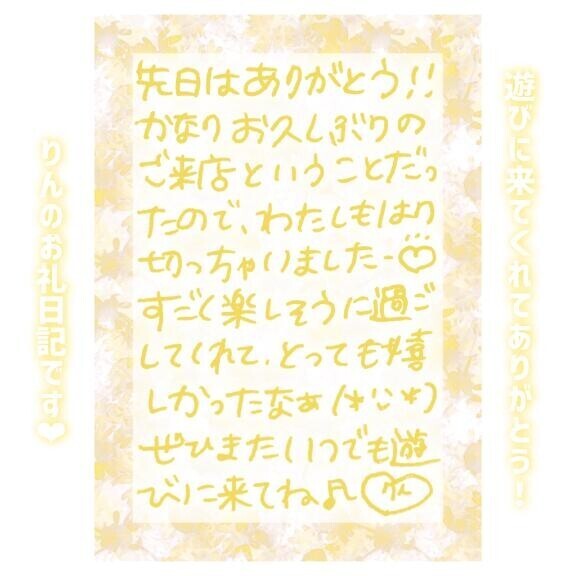 遊びに来てくれてありがとう！
先日はありがとう!!
かなりお久しぶりの
ご来店ということだっ
たので、わたしもはり
切っちゃいました〜♡
すごく楽しそうに過ご
してくれて、とっても嬉
しかったなぁ(*'ω'*)
ぜひまたいつでも遊
びに来てね♪ りん
りんのお礼日記です♥